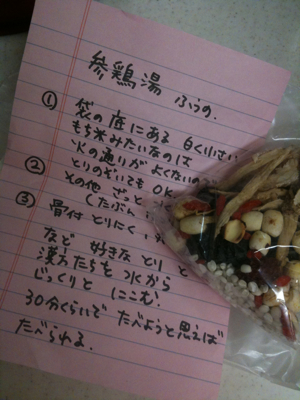 参鶏湯 ふうの。
① 袋の底にある 白く小さい
もち米みたいなのは
火の通りがよくないの
とりのぞいても OK
② その他 ざっと
(たぶん
③ 骨付 とりにく
など 好きな とり と
漢方たちを 水から
じっくりと にこむ
30分くらいで たべようと思えば
たべられる.